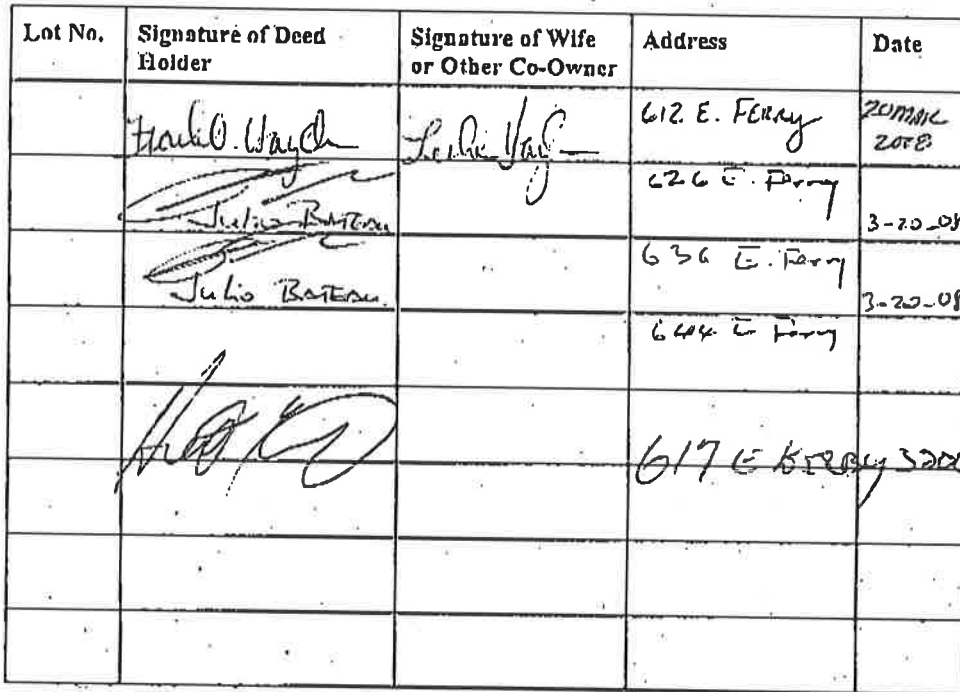 Lot No.
Signature of Deed
Holder
Signature of Wife
or Other Co-Owner
Address
Date
612 E. Ferry
20MAR
2008
Julio Bateau
626 E. Ferry
3-20-08
Julio Bateau
636 E. Ferry
3-20-08
644 E Ferry
617 E Kirby